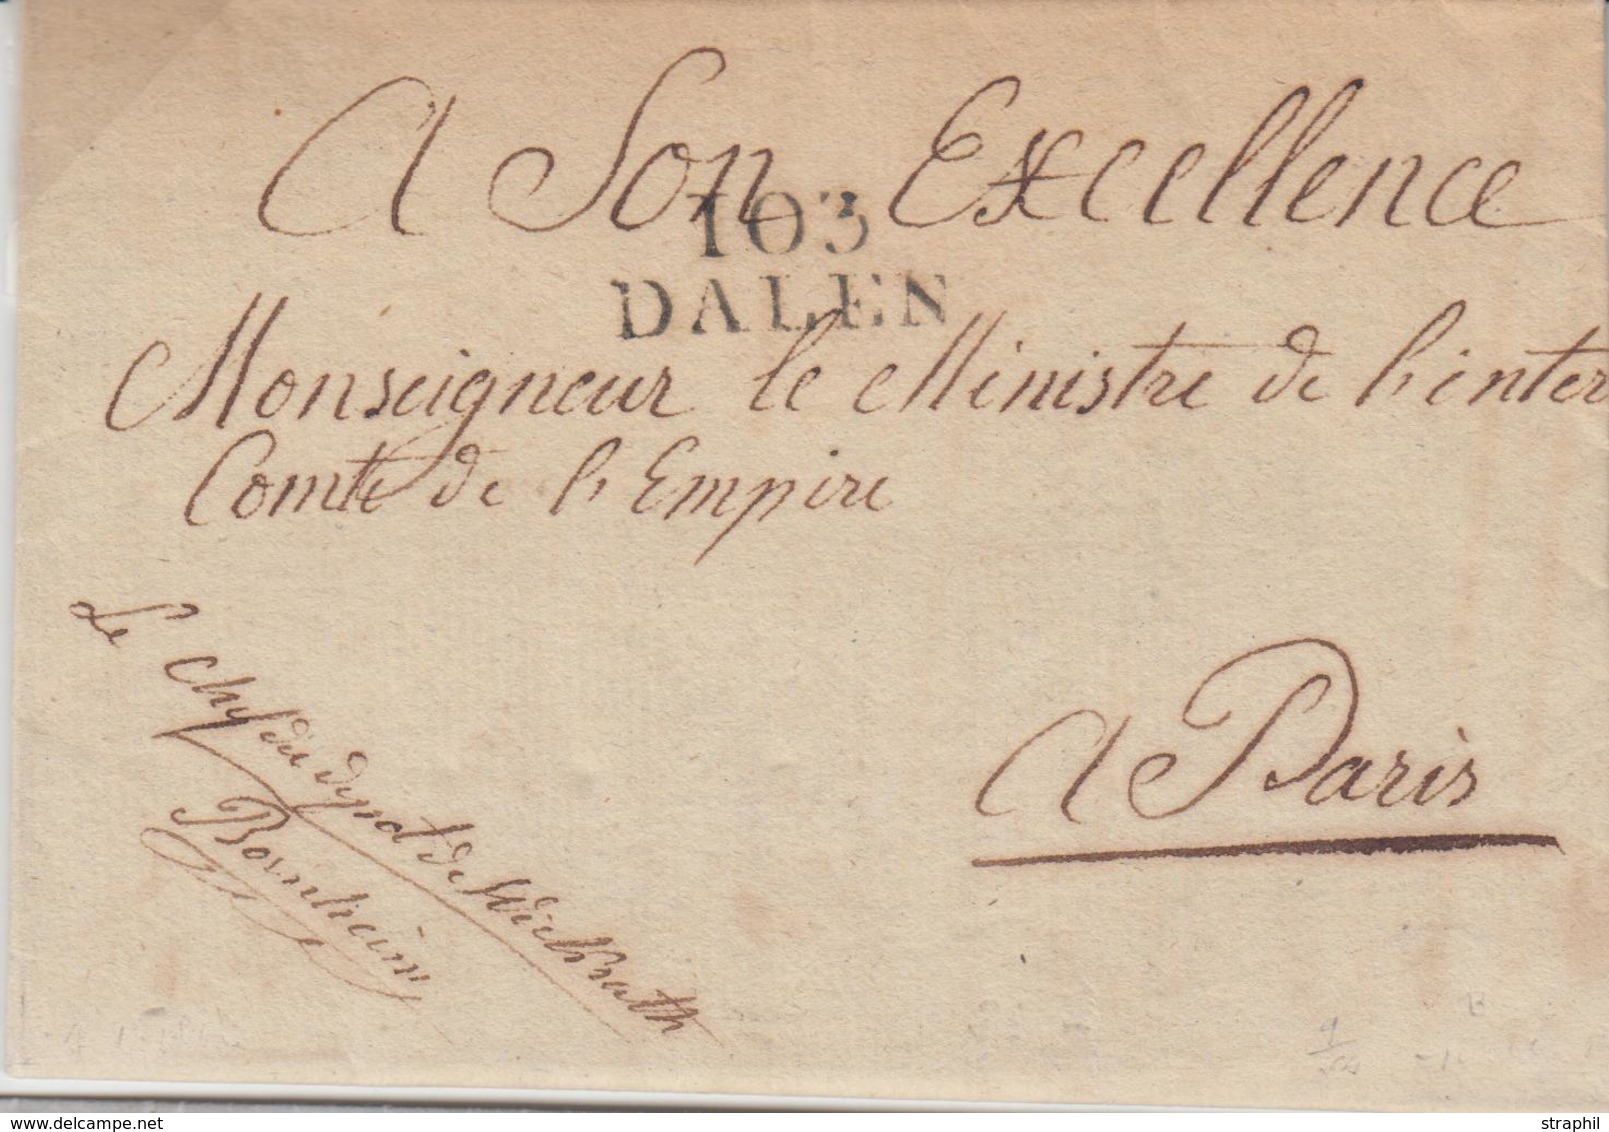 A Son Excellence
103
DALEN
Monseigneur le Ministre de l'inter
Comte de l'Empire
Le Chef du depot de Wickrath
Bornheim
A Paris
straphil